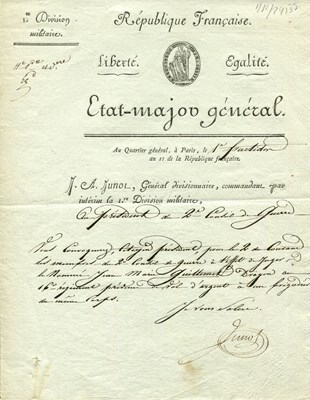 1e Division
militaire.
République Française.
Liberté. Egalité.
Etat-major général.
Au Quartier général, à Paris, le 1er fructidor
an 11 de la République française.
J. A. Junot, Général divisionnaire, commandant par
interim la 1re Division militaire,
Au président du 2e Conseil de Guerre
Vous Convoquerez Citoyen président pour le 2 du Courant
les membres du 2 Conseil de guerre à l'effet de Juger
le Nommé Jean Marie Guillemet Dragon au
16e régiment prévenu de vol d'argent à un brigadier
du même Corps.
Je vous Salue
Junot